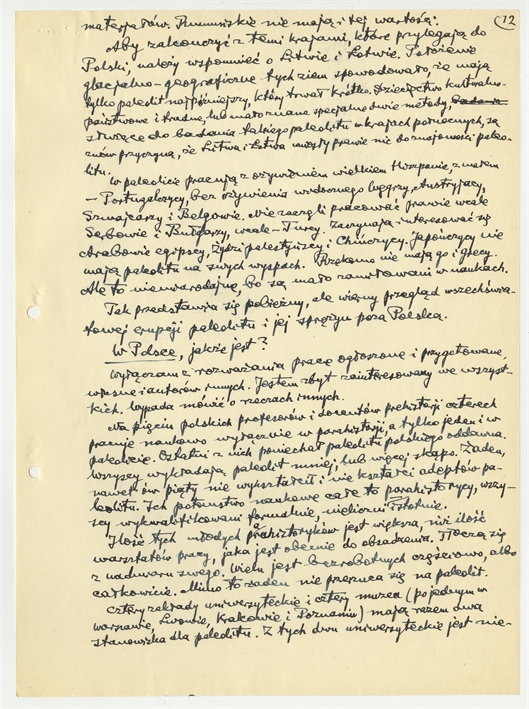 12
materjałów. Rumuńskie nie mają i tej wartości.
Aby zakończyć z temi krajami, które przylegają do
Polski, należy wspomnieć o Litwie i Łotwie. Położenie
glacjalno-geograficzne tych ziem spowodowało, że mają
tylko paleolit najpóźniejszy, który trwał krótko. Dziedzictwo kulturalno-
państwowe i trudne, lub mało znane specjalne dwie metody,
służące do badania takiego paleolitu w krajach północnych, są
znów przyczyną, że Litwa i Łotwa weszły prawie nic do znajomości paleo-
litu.
W paleolicie pracują z ożywieniem wielkiem Hiszpanie, z małem
— Portugalczycy, bez ożywienia widocznego Węgrzy, Austryjacy,
Szwajcarzy i Belgowie. Nie zaczęli pracować prawie wcale
Serbowie i Bułgarzy, wcale — Turcy. Zaczynają interesować się
Arabowie egipscy, Żydzi palestyńscy i Chińczycy. Japończycy nie
mają paleolitu na swych wyspach. Rzekomo nie mają go i Grecy.
Ale to niewiarodajne, bo są mało zamiłowani w naukach.
Tak przedstawia się pobieżny, ale wierny przegląd wszechświa-
towej erupcji paleolitu i jej sprężyn poza Polską.
W Polsce, jakże jest?
Wyłączam z rozważania prace ogłoszone i przygotowane,
własne i autorów innych. Jestem zbyt zainteresowany we wszyst-
kich. Wypada mówić o rzeczach innych.
Na pięciu polskich profesorów i docentów prehistorji czterech
pracuje naukowo wyłącznie w parahistorji, a tylko jeden i w
paleolicie. Ostatni z nich poniechał paleolitu polskiego oddawna.
Wszyscy wykładają paleolit mniej, lub więcej skąpo. Żaden,
nawet ów piąty nie wykształcił i nie kształci adeptów pa-
leolitu. Ich potomstwo naukowe całe to parahistorycy, wszy-
scy wykwalifikowani formalnie, niektórzy istotnie.
Ilość tych młodych parahistoryków jest większa, niż ilość
warsztatów pracy, jaka jest obecnie do obsadzenia. Tłoczą się
z nadmiaru swego. Wielu jest bezrobotnych częściowo, albo
całkowicie. Mimo to żaden nie przerzuca się na paleolit.
Cztery zakłady uniwersyteckie i cztery muzea (po jednym w
Warszawie, Lwowie, Krakowie i Poznaniu) mają razem dwa
stanowiska dla paleolitu. Z tych dwu uniwersyteckie jest nie-